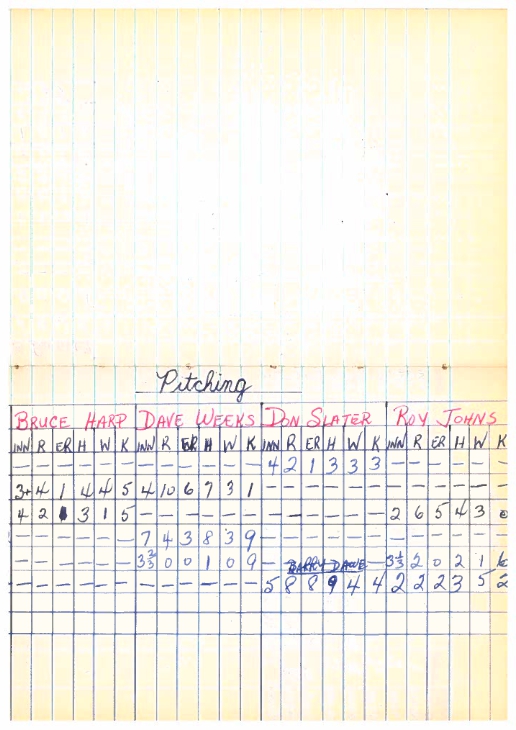 Pitching
BRUCE HARP DAVE WEEKS DON SLATER ROY JOHNS
INN R ER H W K INN R ER H W K INN R ER H W K INN R ER H W K
— — — — — — — — — — — — 4 2 1 3 3 3 — — — — — —
3+ 4 1 4 4 5 4 10 6 7 3 1 — — — — — — — — — — — —
4 2 1 3 1 5 — — — — — — — — — — — — 2 6 5 4 3
— — — — — — 7 4 3 8 3 9 — — — — — — — — — — — —
— — — — — — 3 2/3 0 0 1 0 9 — BARRY DAWE — 3 1/3 2 0 2 1
— — — — — — — — — — — — 5 8 8 9 4 4 2 2 2 3 5 2